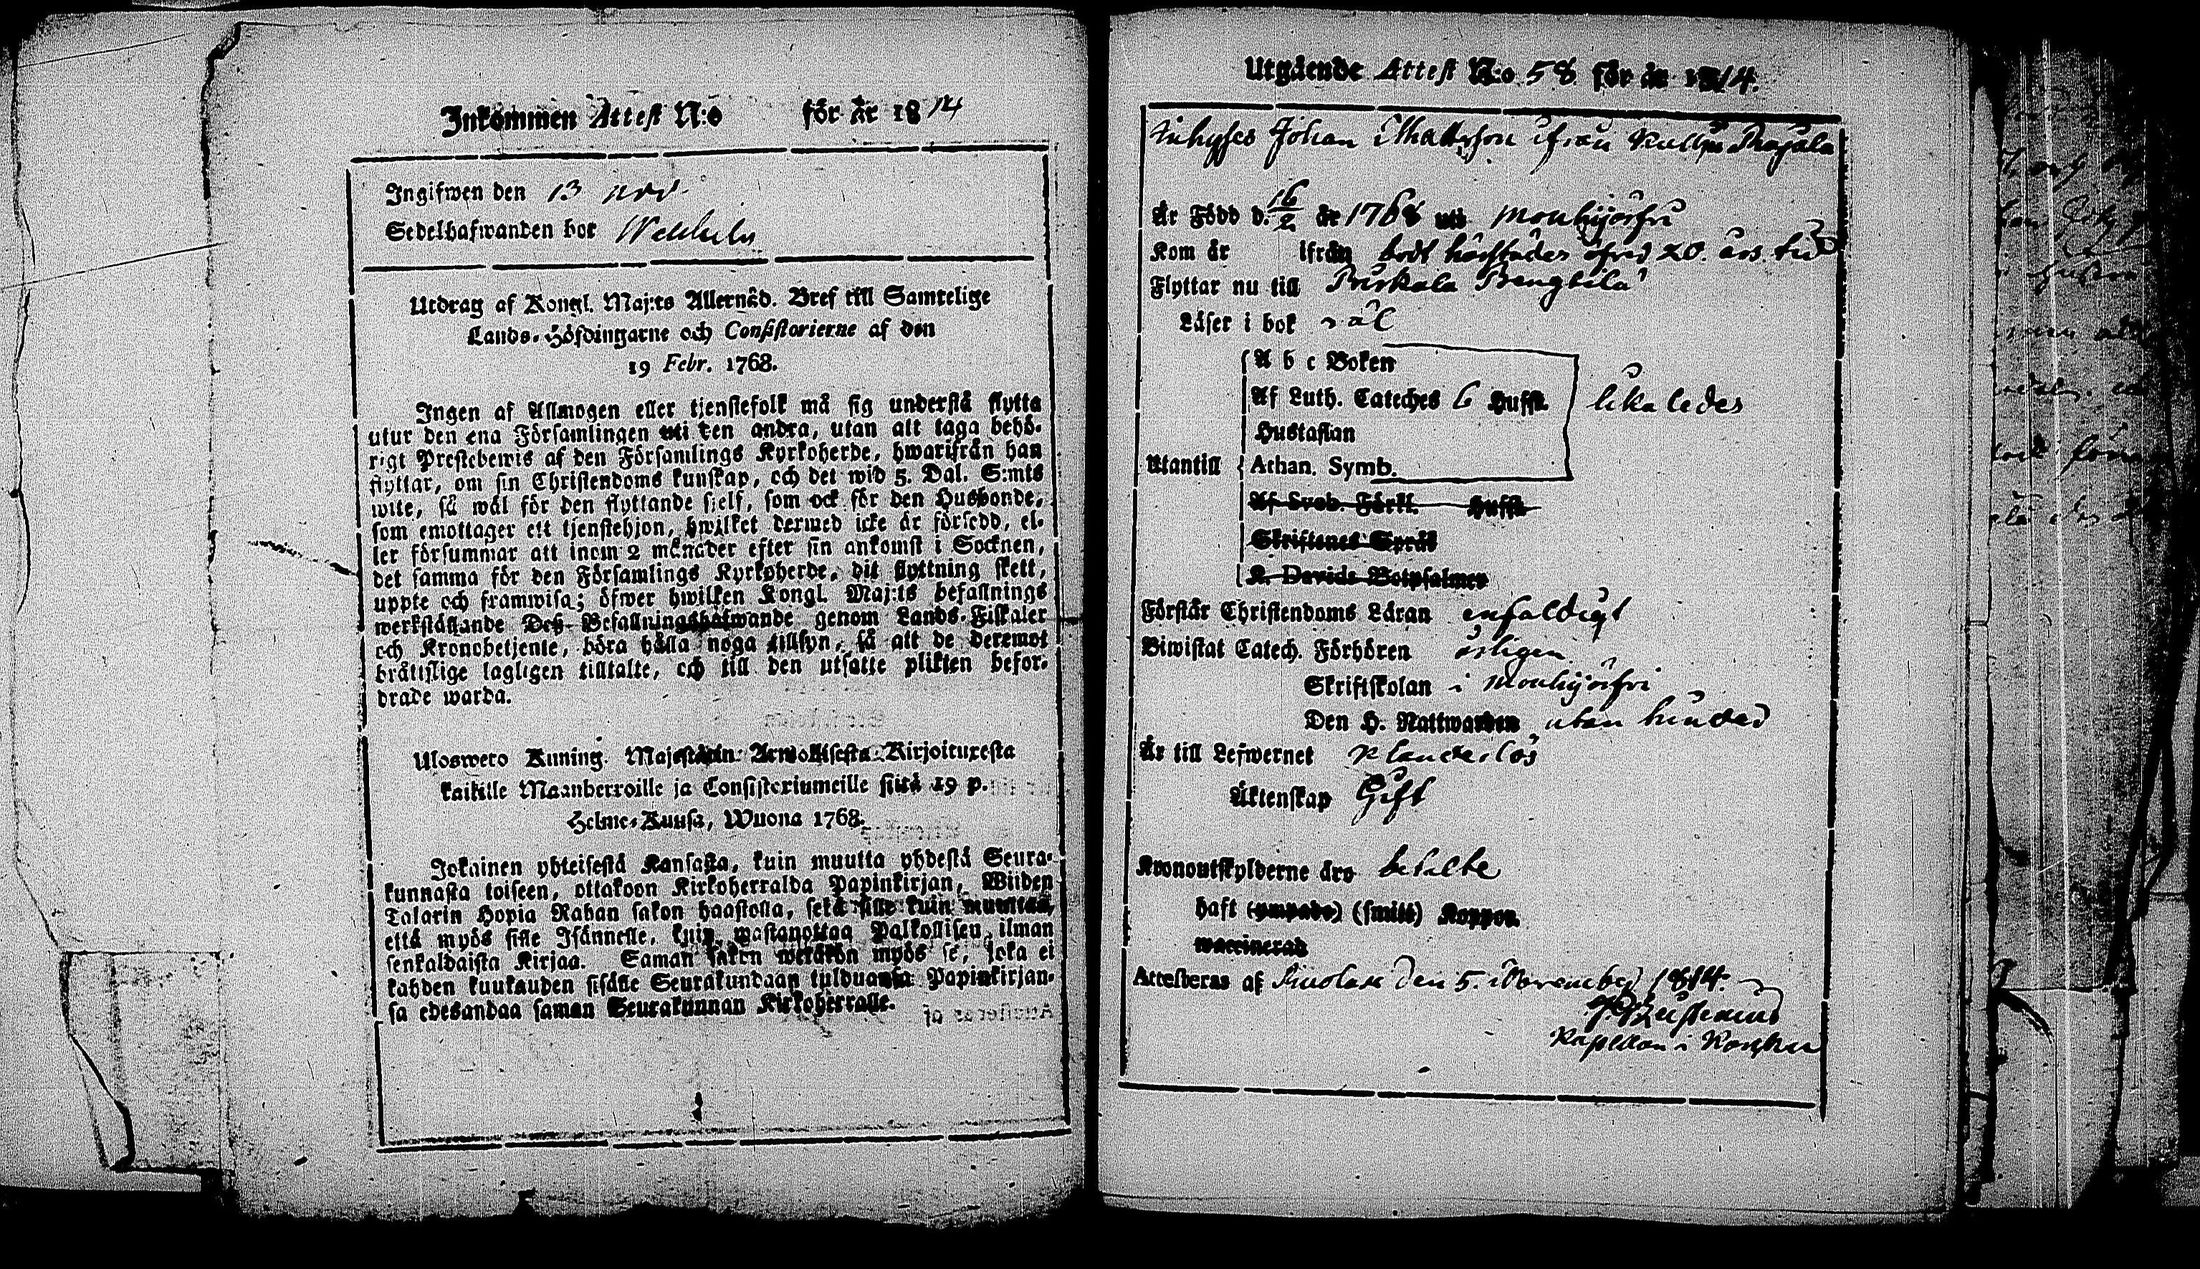 Inkommen Attest N:o för år 1814
Ingifwen den 13 nov
Sedelhafwanden bor
Utdrag af Kongl. Maj:ts Allernåd. Bref till Samtelige
Lands-Höfdingarne och Consistorierne af den
19 Febr. 1768.
Ingen af Allmogen eller tjenstefolk må sig understå flytta
utur den ena Församlingen uti den andra, utan att taga behö-
rigt Prestebewis af den Församlings Kyrkoherde, hwarifrån han
flyttar, om sin Christendoms kunskap, och det wid 5. Dal. S:mts
wite, så wäl för den flyttande sjelf, som ock för den Husbonde,
som emottager ett tjenstehjon, hwilket dermed icke är försedd, el-
ler försummar att inom 2 månader efter sin ankomst i Socknen,
det samma för den Församlings Kyrkoherde, dit flyttning skett,
uppte och framwisa; öfwer hwilken Kongl. Maj:ts befallnings
werkställande Deß Befallningshafwande genom Lands-Fiskaler
och Kronobetjente, böra hålla noga tillsyn, så att de deremot
bråttslige lagligen tilltalte, och till den utsatte plikten befor-
drade warda.
Uloswero Kuning. Majestätin Armollisesta Kirjoituxesta
kaikille Maanherroille ja Consistoriumeille siitä 19 p.
Helme-Kuusa, Wuona 1768.
Jokainen yhteisestä Kansasta, kuin muutta yhdestä Seura-
kunnasta toiseen, ottakoon Kirkoherralda Papinkirjan, Wiiden
Talarin Hopia Rahan sakon haastolla, sekä sille kuin muuttaa,
että myös sille Isännelle, kuin wastanottaa Palkollisen ilman
senkaldaista Kirjaa. Saman sakon wetäkön myös se, joka ei
kahden kuukauden sisälle Seurakundaan tulduansa Papinkirjan-
sa edesandaa saman Seurakunnan Kirkoherralle.
Utgående Attest N:o 58 för år 1814.
Inhyses Johan Mattsson ifrån
Är Född d. 16/2 år 1768 uti Mouhijärfvi
Kom år ifrån bodt härstädes öfver 20. års tid
Flyttar nu till Puiskala Bengtilä
Läser i bok väl
A b c Boken
Af Luth. Cateches 6 Hufst. likaledes
Hustaflan
Utantill Athan. Symb.
Af Sveb. Förkl. Hufst.
Skriftenes Språk
K. Davids Botpsalmer
Förstår Christendoms Läran enfaldigt
Biwistat Catech. Förhören årligen
Skriftskolan i Mouhijärfvi
Den H. Nattwarden utan hinder
Är till Lefwernet klanderlös
Äktenskap Gift
Kronoutskylderne äro betalte
haft (ympade) (smitt) Koppor
waccinerad
Attesteras af den 5. November 1814.
Kapellan i